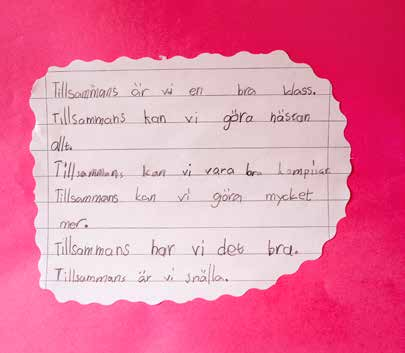 Tillsammans är vi en bra klass.
Tillsammans kan vi göra nästan
allt.
Tillsammans kan vi vara bra kompisar
Tillsammans kan vi göra mycket
mer.
Tillsammans har vi det bra.
Tillsammans är vi snälla.